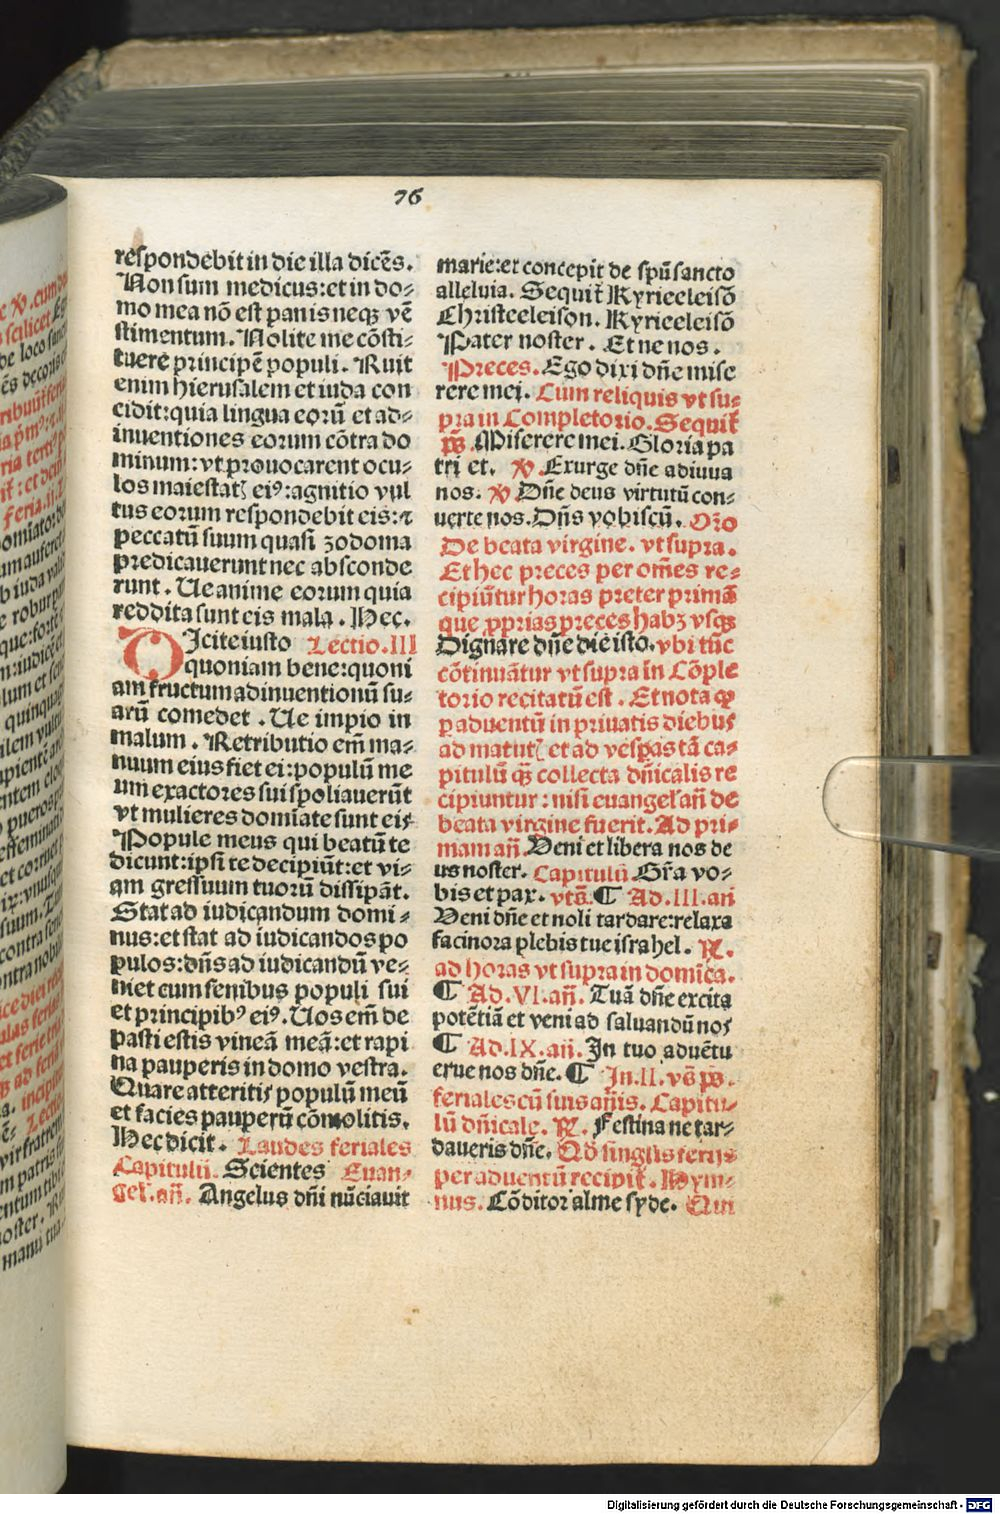 76
respondebit in die illa dicēs.
Non sum medicus: et in do⸗
mo mea nō est panis neqꝫ vē
stimentum. Nolite me cōsti⸗
tuere principē populi. Ruit
enim hierusalem et iuda con
cidit: quia lingua eorū et ad⸗
inuentiones eorum cōtra do
minum: vt prouocarent ocu⸗
los maiestatꝭ eiꝰ: agnitio vul
tus eorum respondebit eis: ⁊
peccatū suum quasi zodoma
predicauerunt nec absconde
runt. Ue anime eorum quia
reddita sunt eis mala. Hec.
DIcite iusto Lectio. III
quoniam bene: quoni
am fructum adinuentionū su⸗
arū comedet. Ue impio in
malum. Retributio em̄ ma⸗
nuum eius fiet ei: populū me
um exactores sui spoliauerūt
vt mulieres domīate sunt eis
Popule meus qui beatū te
dicunt: ipsi te decipiūt: et vi⸗
am gressuum tuorū dissipāt.
Stat ad iudicandum domi⸗
nus: et stat ad iudicandos po
pulos: dn̄s ad iudicandū ve⸗
niet cum senibus populi sui
et principibꝰ eiꝰ. Uos em̄ de
pasti estis vineā meā: et rapi
na pauperis in domo vestra.
Quare atteritis populū meū
et facies pauperū cōmolitis.
Hec dicit. Laudes feriales
Capitulū. Scientes Euan⸗
gel̓. an̄. Angelus dn̄i nūciauit
marie: et concepit de spū sancto
alleluia. Sequit̄ Kyrieeleisō
Christeeleison. Kyrieeleisō
Pater noster. Et ne nos.
Preces. Ego dixi dn̄e mise
rere mei. Cum reliquis vt su⸗
pra in Completorio. Sequit̄
ps̄. Miserere mei. Gloria pa
tri et. ℣ Exurge dn̄e adiuua
nos. ℣ Dn̄e deus virtutū con⸗
uerte nos. Dn̄s vobiscū. Or̄o
De beata virgine. vt supra.
Et hec preces per om̄es re⸗
cipiūtur horas preter primā
que ꝓprias preces habꝫ vsqꝫ
Dignare dn̄e die isto. vbi tūc
cōtinuātur vt supra in Cōple
torio recitatū est. Et nota ꝙ
ꝑ aduentū in priuatis diebus
ad matutꝭ et ad vesperas tā ca⸗
pitulū qꝫ collecta dn̄icalis re
cipiuntur: nisi euangel̓ an̄ de
beata virgine fuerit. Ad pri⸗
mam an̄. Veni et libera nos de
us noster. Capitulū. Gr̄a vo⸗
bis et pax. vts̄. ¶ Ad. III. an̄
Veni dn̄e et noli tardare: relaxa
facinora plebis tue israhel. ℟.
ad horas vt supra in domīca.
¶ Ad. VI. an̄. Tuā dn̄e excita
potētiā et veni ad saluandū nos
¶ Ad. IX. an̄. In tuo aduētu
erue nos dn̄e. ¶ In. II. vs̄ ps̄.
feriales cū suis an̄is. Capitu⸗
lū dn̄icale. ℟. Festina ne tar⸗
daueris dn̄e. Qd̄ singlis ferijs
per aduentū recipit̄. Hym⸗
nus. Cōditor alme syde. Qui
Digitalisierung gefördert durch die Deutsche Forschungsgemeinschaft - DFG